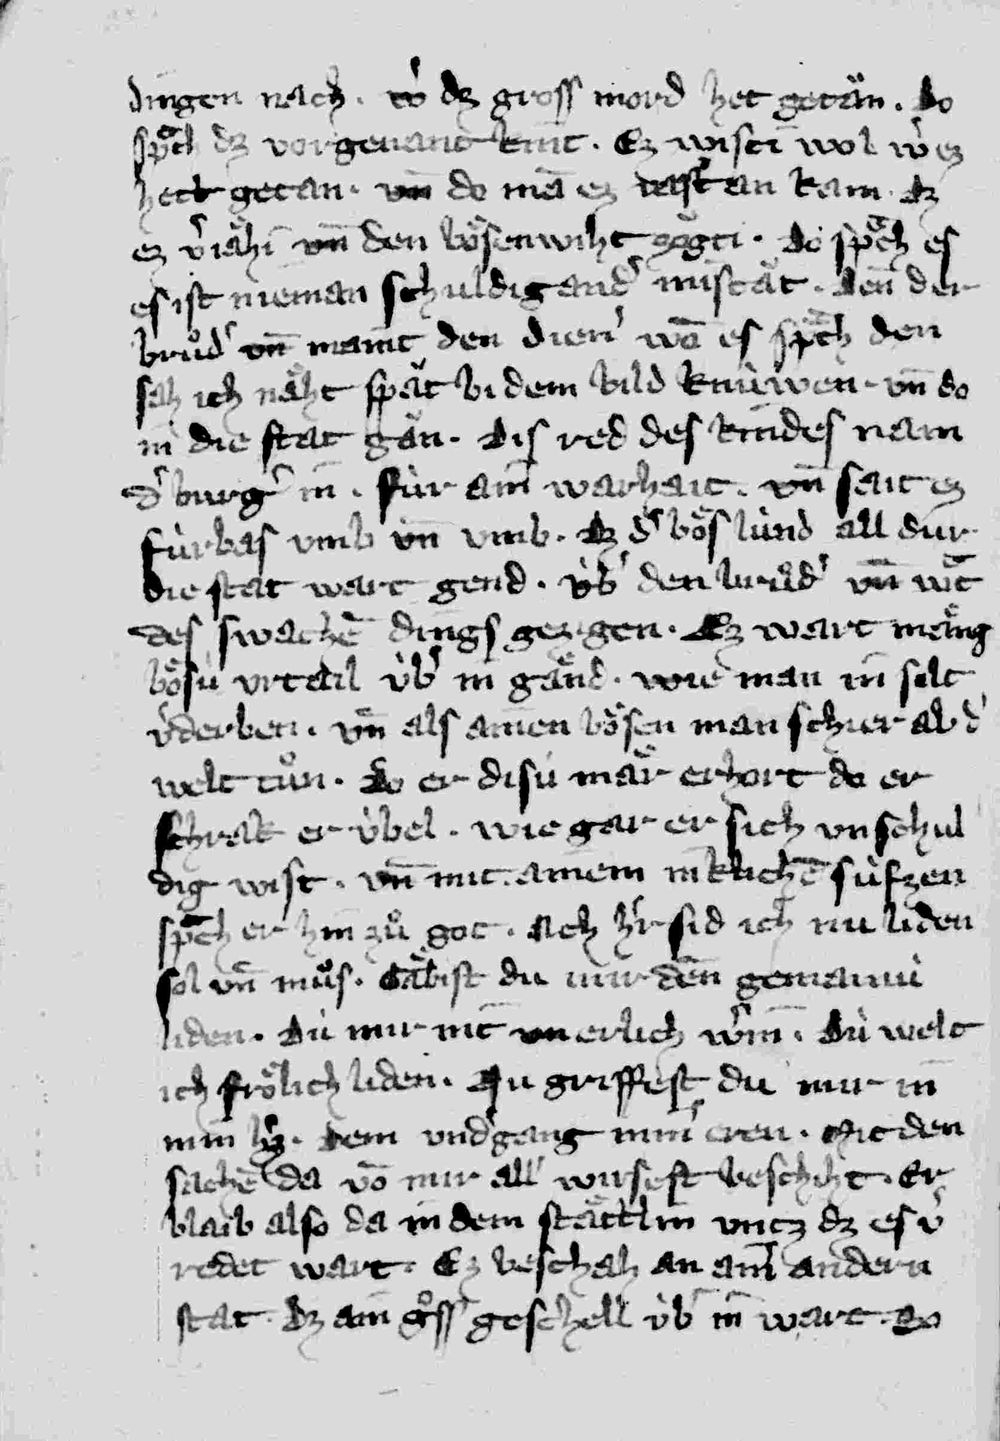 dingen nach . wͦ dz gross mord het getän . do
sp̄ch dz vorgenant kint . Ez wisti wol w̓ ez
hett getan . vn̄ do mā ez vast an kam . dz
ez v̓iähi vn̄ den bösenwiht zögti . do sp̄ch es
es ist nieman schuldig and̓ miſtät . den̄ der
brůd̓ vn̄ maint den dien̓ wā es sp̄ch den
sah ich näht spät bi dem bild knüwen . vn̄ do
in̄ die stat gän . Dis red des kindes nam
d̓ burg̓ in̄ . für ain̄ warhait . vn̄ sait ez
fürbas vmb vn̄ vmb . dz d̓ bös lünd all dur
die stat wart gend . üb̓ den brůd̓ vn̄ wt̄
des swachē dings gezigen . Ez wart mäng
bösü vrtail üb̓ in gänd . wie man in̄ solt
v̓derben . vn̄ als ainen bösen man schier ab d̓
welt tůn . do er disü mär erhort do er
schrak er übel . wie gar er sich vnschul
dig wist . vn̄ mit ainem inklichē süfzen
sp̄ch er hin̄ zů got . Ach h̓r sid ich nu liden
sol vn̄ můs . Gäbist du mir den̄ gemainü
liden . Dü mir nit̄ vnerlich w̓in̄ . Dü welt
ich frölich liden . Nu griffest du mir in̄
min h̓z . dem vnd̓gang min̓ eren . Mit den
sachē da vō mir all̓ wirsest beschiht . Er
blaib also da in dem stättlin vntz dz es v̓
redet wart . Ez beschah an ain̓ andern
stat . dz ain gͦss̓ geschell üb̓ in̄ wart . do